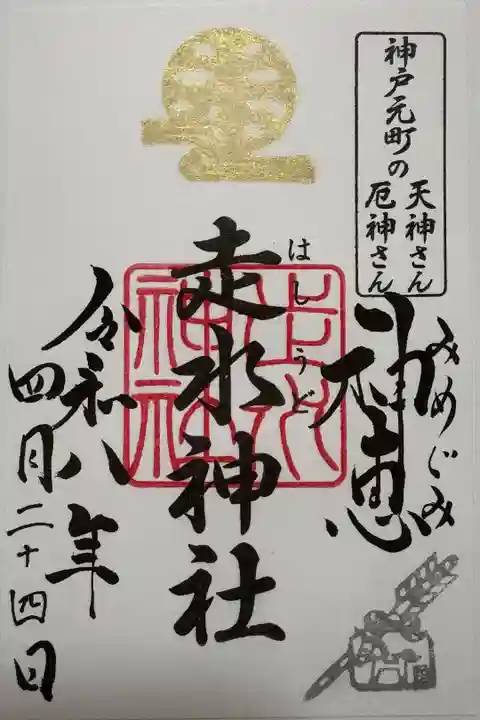 神戸元町の
天神さん
厄神さん
神恵
みめぐみ
走水神社
はしうど
令和八年
四月二十四日